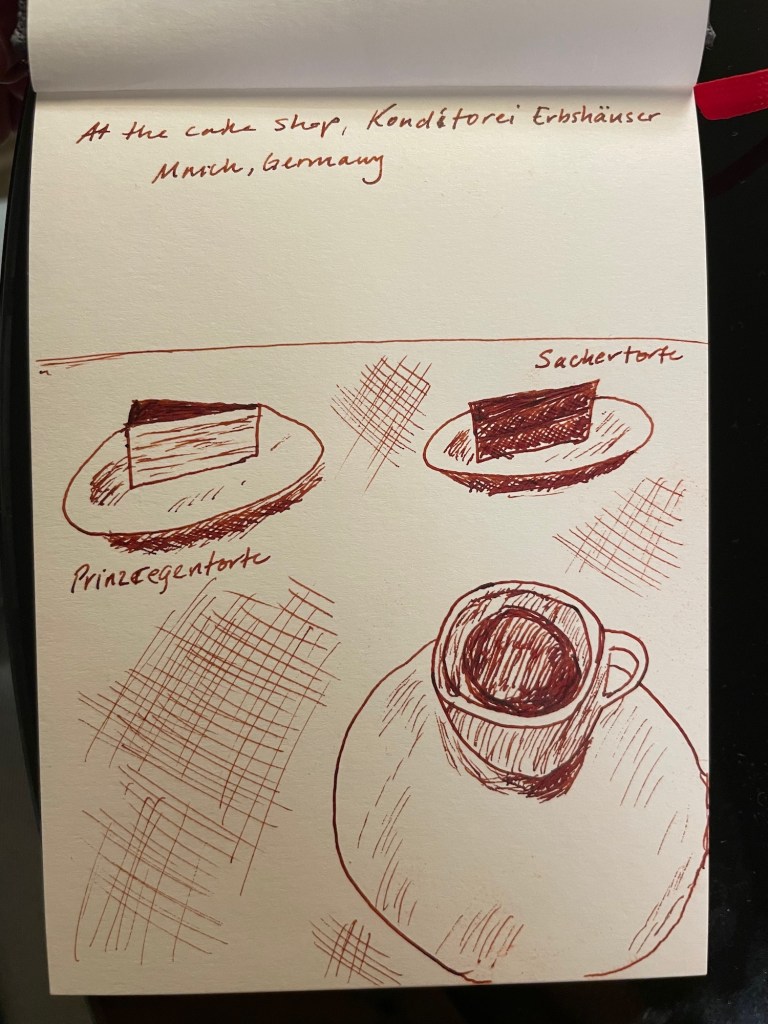 At the cake shop, Konditorei Erbshäuser
Mnich, Germany
Sachertorte
Prinzregentorte